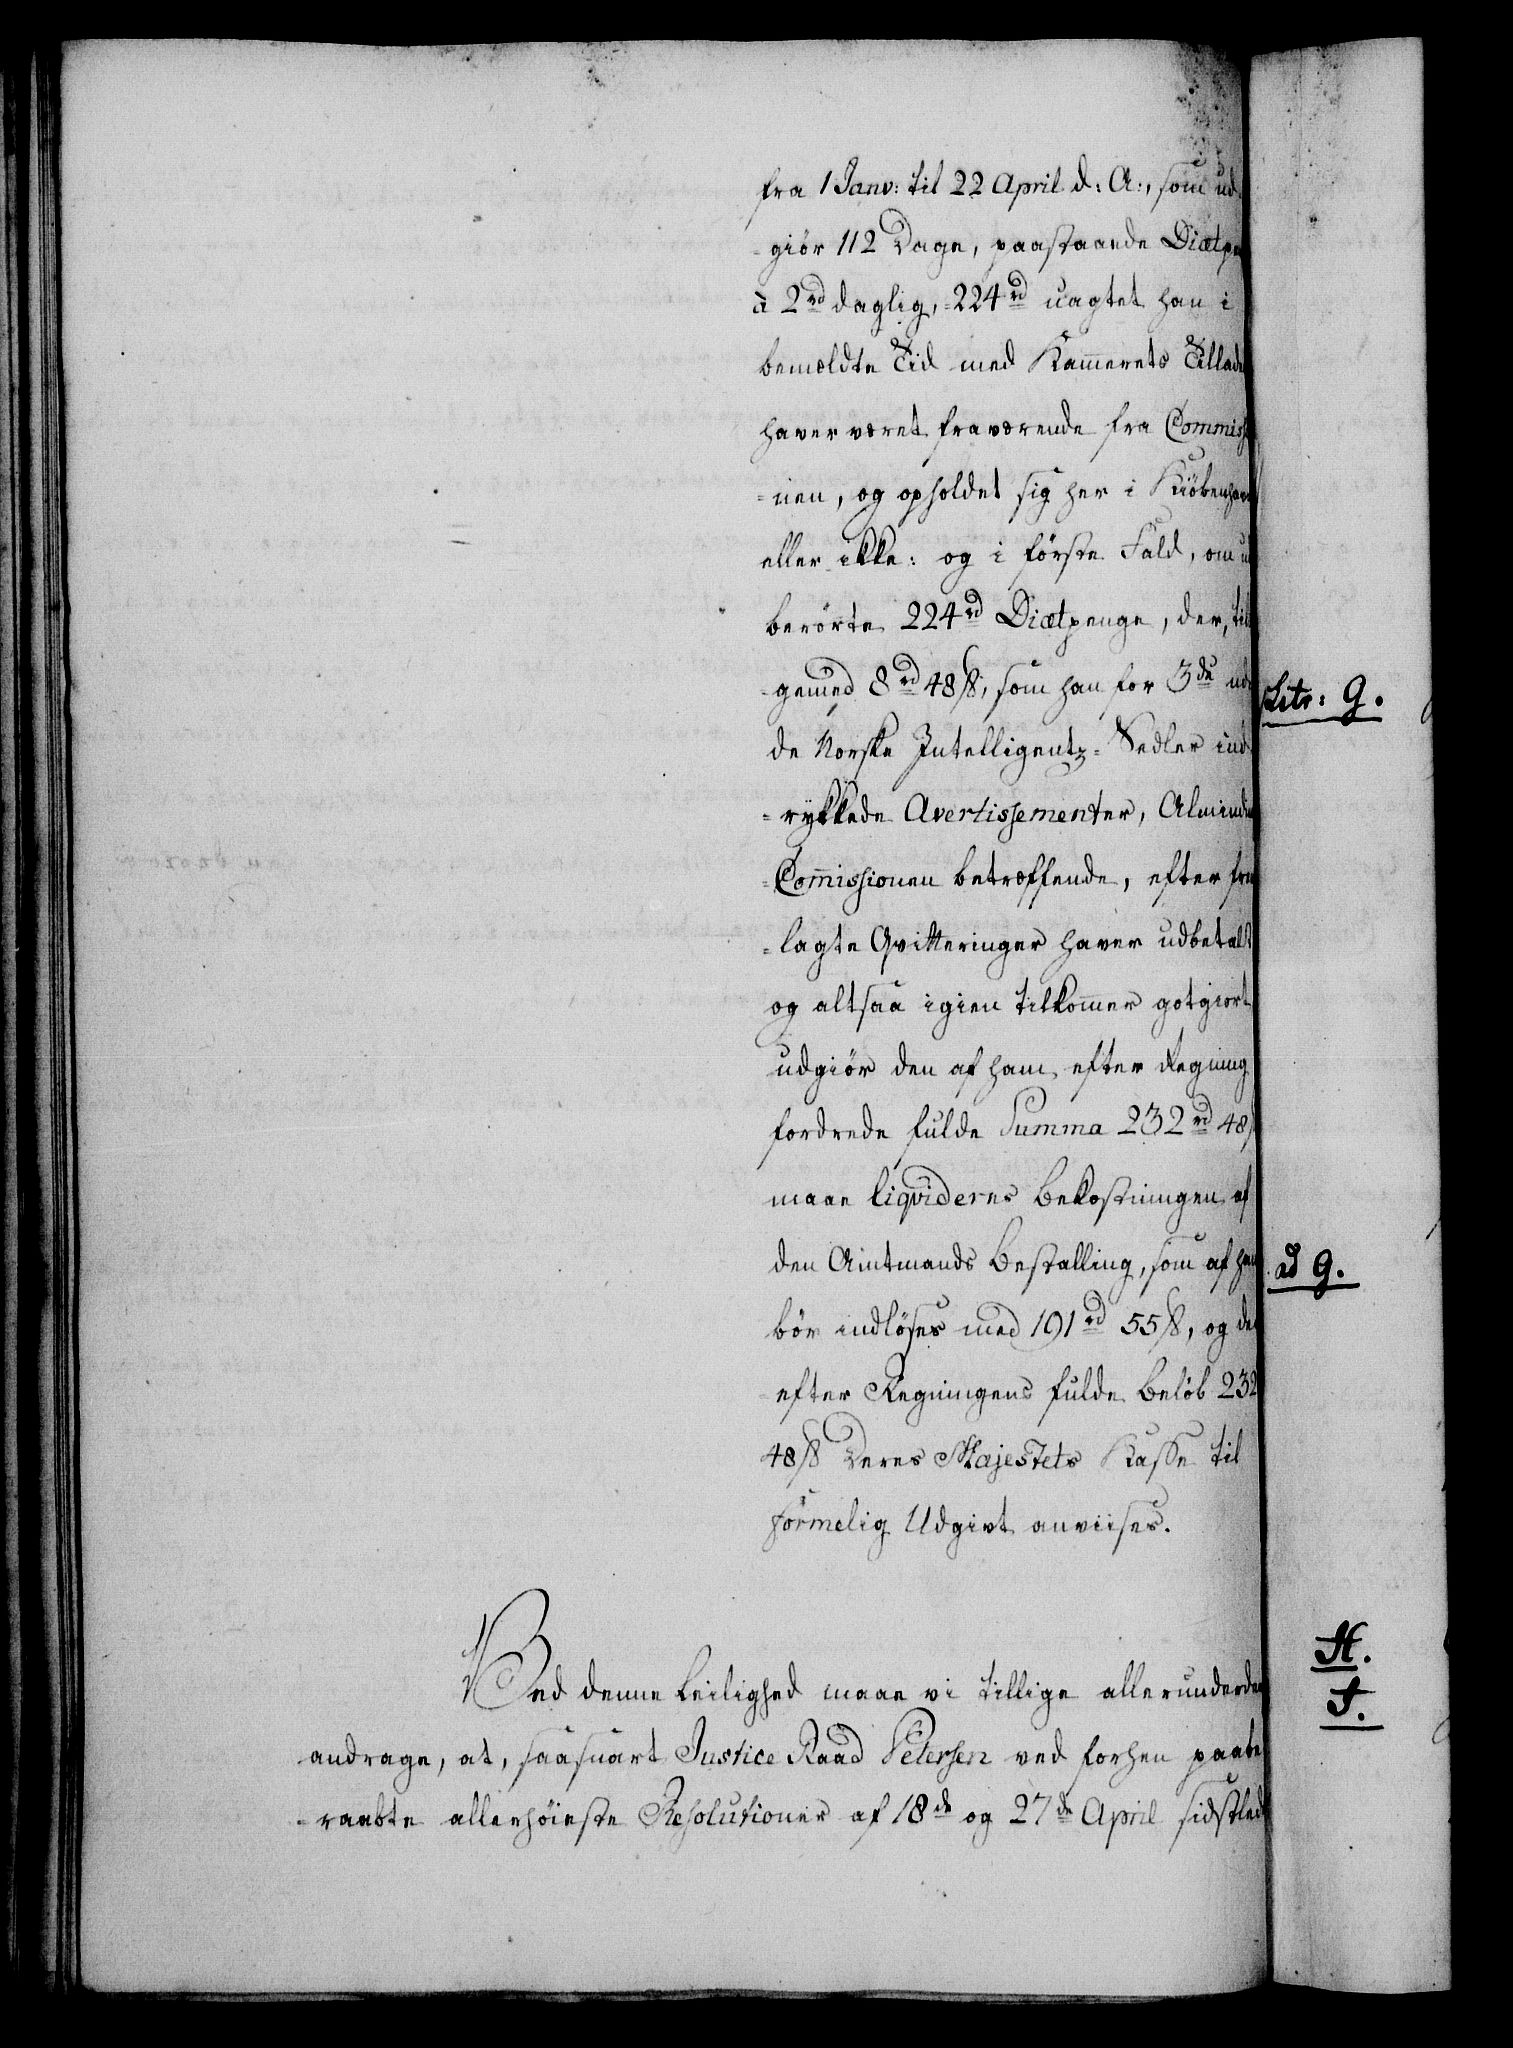 fra 1 Janv: til 22 April d: A:, som ud-
-giör 112 Dage, paastaaende Diætpen
à 2 rd daglig, 224 rd uagtet han i
bemældte Tid med Kammerets Tillade
haver været fraværende fra Commiss
-nen, og opholdet sig her i Kiöbenhavn
eller ikke: og i förste Fald, om
berörte 224 rd Diætpenge, der, til
-gemed 8 rd 48 ß, som han for 3de
de Norske Intelligentz-Sedler ind
-rykkede Avertissementer, Alminding
-Commissionen betræffende, efter frem
-lagte Qvitteringer haver udbetalt
og altsaa igien tilkommer gotgiort
udgiör den af ham efter Regning
fordrede fulde Summa 232 rd 48 ß
maae liqvideres Bekostningen af
den Amtmands Bestalling, som af ham
bör indlöses med 191 rd 55 ß, og de
efter Regningens fulde Belöb 232
48 ß Deres Majestets Kasse til
formelig Udgivt anviises.
Ved denne Leilighed maae vi tillige allerunderda
andrage, at, saasnart Justice Raad Petersen ved forhen paabe
-raabte allerhöieste Resolutioner af 18de og 27de April sidstled
Litr: G.
ad G.
H.
J.